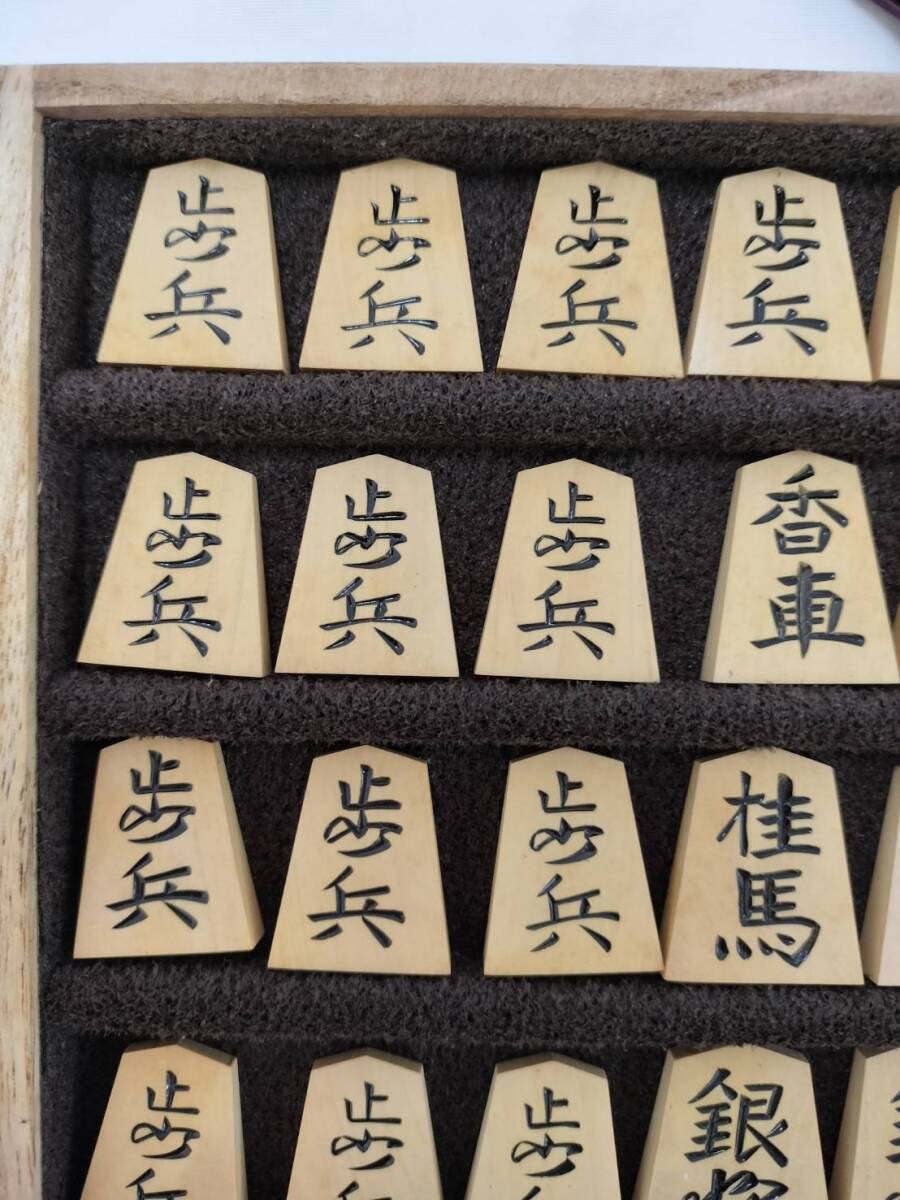 歩兵
歩兵
歩兵
歩兵
歩兵
歩兵
歩兵
香車
歩兵
歩兵
歩兵
桂馬
歩
歩
歩
銀